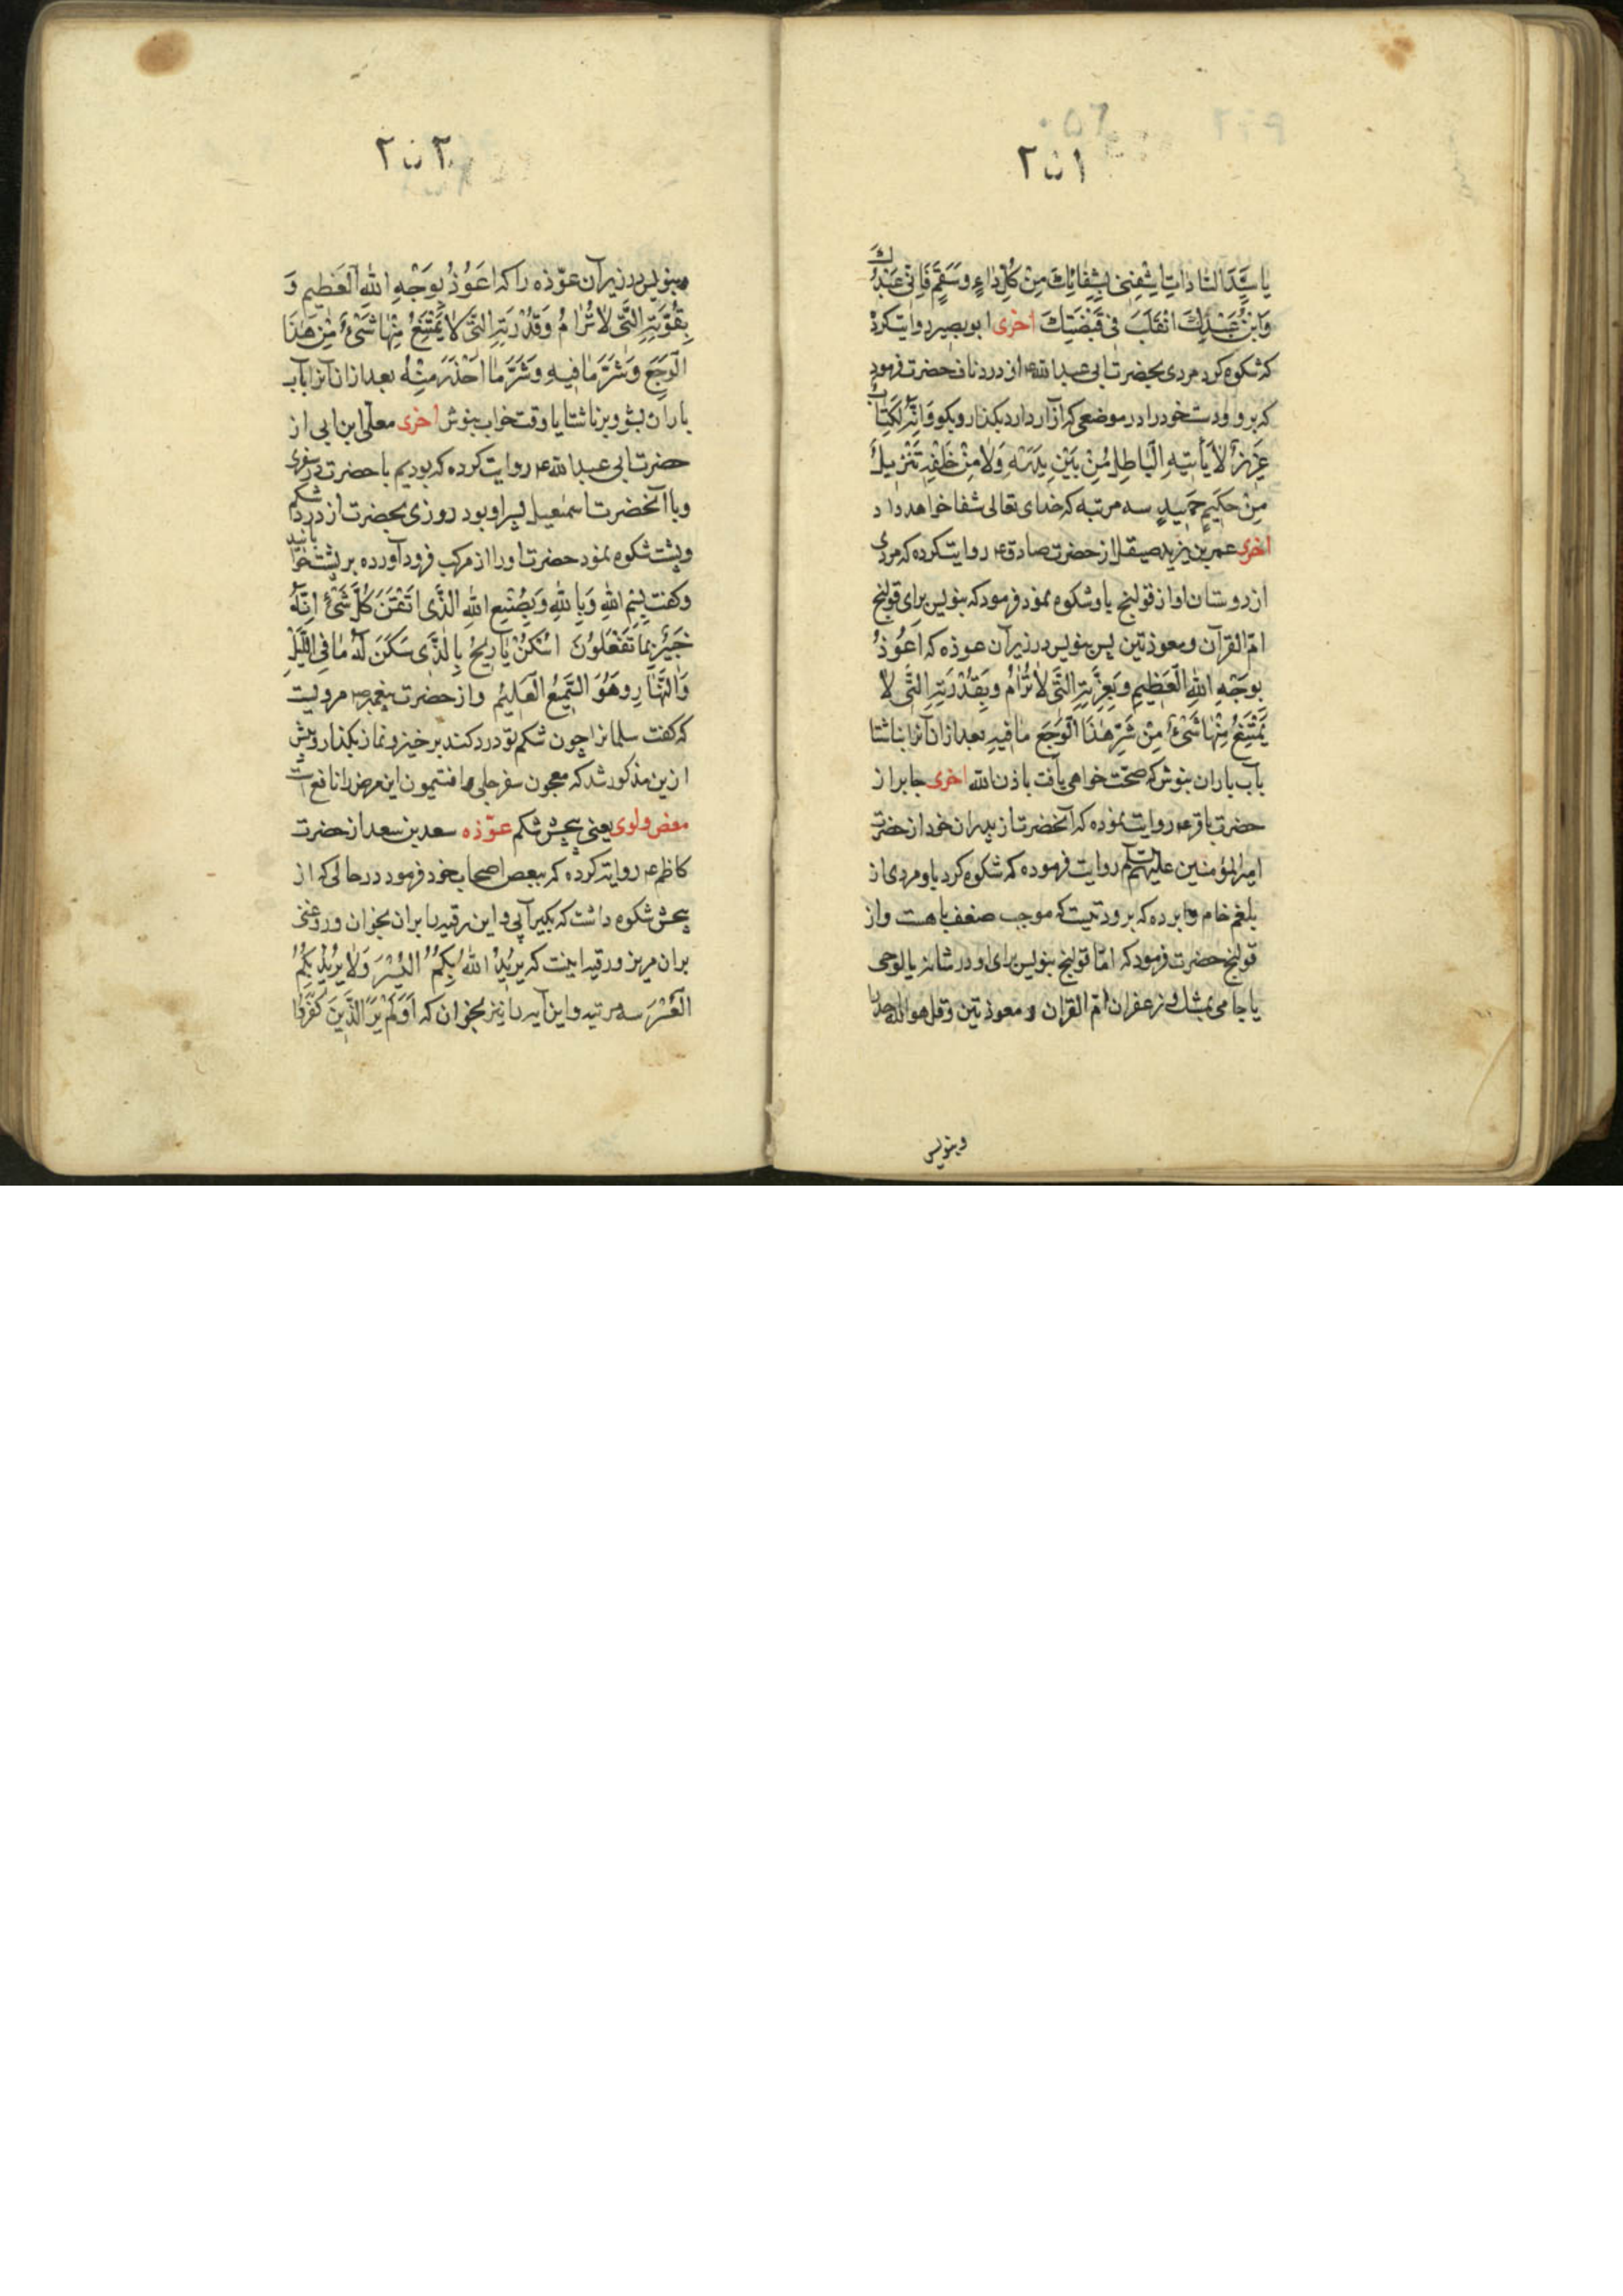 ۲۵۱
یا سَیِّدَ السّاداتِ اِشْفِنی بِشِفائِكَ مِنْ كُلِّ داءٍ وَسَقَمٍ فَاِنّی عَبْدُكَ
وَابْنُ عَبْدِكَ اَتَقَلَّبُ فی قَبْضَتِكَ اخری ابو بصیر روایت کرده
که شکوه کرد مردی بحضرت ابی عبد الله ع از درد ناف حضرت فرمود
که برو و دست خود را در موضعی که آزار دارد بگذار و بگو وَاِنَّهُ لَكِتابٌ
عَزیزٌ لا یَأْتیهِ الْباطِلُ مِنْ بَیْنِ یَدَیْهِ وَلا مِنْ خَلْفِهِ تَنْزیلٌ
مِنْ حَكیمٍ حَمیدٍ سه مرتبه که خدای تعالی شفا خواهد داد
اخری عمر بن یزید صیقل از حضرت صادق ع روایت کرده که مردی
از دوستان او از قولنج باو شکوه نمود فرمود که بنویس برای قولنج
ام القرآن و معوذتین پس بنویس در زیر آن عوذه که اَعُوذُ
بِوَجْهِ اللهِ الْعَظیمِ وَبِعِزَّتِهِ الَّتی لا تُرامُ وَبِقُدْرَتِهِ الَّتی لا
یَمْتَنِعُ مِنْها شَیْءٌ مِنْ شَرِّ هٰذَا الْوَجَعِ مافیهِ بعد از ان آنرا ناشتا
بآب باران بنوش که صحت خواهی یافت باذن الله اخری جابر از
حضرت باقر ع روایت نموده که آنحضرت از پدران خود از حضرت
امیر المؤمنین علیهم السلم روایت فرموده که شکوه کرد باو مردی از
بلغم خام و ابرده که برودتیست که موجب ضعف باهست و از
قولنج حضرت فرمود که امّا قولنج بنویس برای او در شانه یا لوحی
یا جامی بمشك و زعفران ام القران و معوذتین و قل هو الله احد را
وبنویس
۲۵۲
وبنویس در زیر آن عوّذه را که اَعُوذُ بِوَجْهِ اللهِ الْعَظیمِ وَ
بِقُوَّتِهِ الَّتی لا تُرامُ وَقُدْرَتِهِ الَّتی لا یَمْتَنِعُ مِنْها شَیْءٌ مِنْ هٰذَا
الْوَجَعِ وَشَرِّ مافیهِ وَشَرِّ ما اَحْذَرُ مِنْهُ بعد از ان آنرا بآب
باران بشو و بر ناشتا یا وقت خواب بنوش اخری معلّی ابن ابی از
حضرت ابی عبد الله ع روایت کرده که بودیم با حضرت در سفری
و با آنحضرت اسمعیل پسر او بود روزی بحضرت از درد شکم
و پشت شکوه نمود حضرت او را از مرکب فرود آورده بر پشت خوابانید
و گفت بِسْمِ اللهِ وَبِاللهِ وَبِصُنْعِ اللهِ الَّذی اَتْقَنَ كُلَّ شَیْءٍ اِنَّهُ
خَبیرٌ بِما تَفْعَلُونَ اُسْكُنْ یا ریحُ بِالَّذی سَكَنَ لَهُ ما فِی اللَّیْلِ
وَالنَّهارِ وَهُوَ السَّمیعُ الْعَلیمُ و از حضرت پیغمبر ص مرویست
که گفت سلمانرا چون شکم تو درد کند برخیز و نماز بگذار و پیش
ازین مذکور شد که معجون سفرجلی و افتیمون این مرض را نافع است
مغض و لوی یعنی پیچش شکم عوّذه سعد بن سعد از حضرت
کاظم ع روایت کرده که ببعض اصحاب خود فرمود در حالی که از
پیچش شکوه داشت که بگیر آبی و این رقیه را بر ان بخوان و روغنی
بران بریز و رقیه اینست که یُریدُ اللهُ بِكُمُ الْیُسْرَ وَلا یُریدُ بِكُمُ
الْعُسْرَ سه مرتبه و این آیه را نیز بخوان که اَوَلَمْ یَرَ الَّذینَ كَفَرُوا